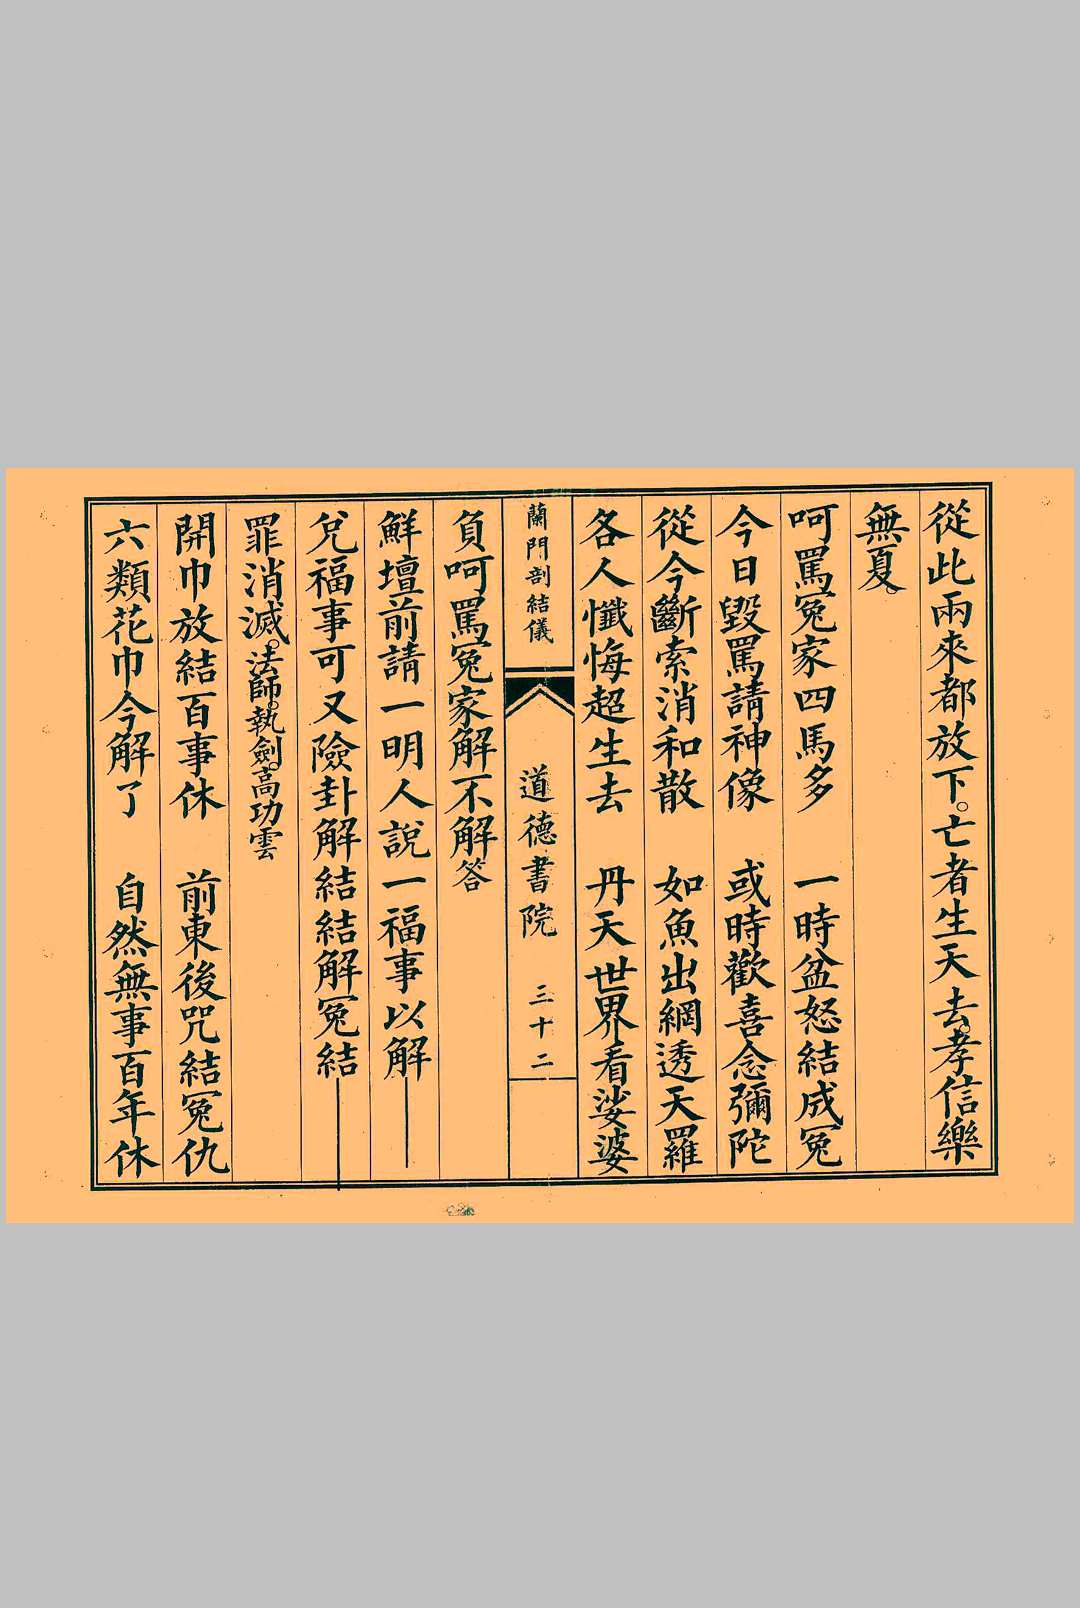 從此兩來都放下。亡者生天去。孝信樂
無夏。
呵罵冤家四馬多　一時盆怒結成冤
今日毀罵請神像　或時歡喜念彌陀
從今斷索消和散　如魚出網透天羅
各人懺悔超生去　丹天世界看娑婆
蘭門剖結儀　道德書院　三十二
負呵罵冤家解不解答
鮮壇前請一明人說一福事以解
兌福事可又險卦解結結解冤結
罪消滅。法師。執劍。高功雲
開巾放結百事休　前東後咒結冤仇
六類花巾今解了　自然無事百年休